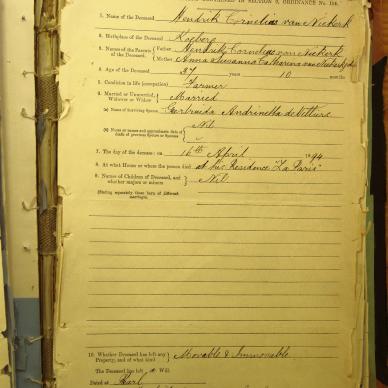 SECTION 9, ORDINANCE No. 104.
1. Name of the Deceased Hendrik Cornelius van Niekerk
2. Birthplace of the Deceased Koeberg
3. Names of the Parents of the Deceased. Father Hendrik Cornelius van Niekerk
Mother Anna Susanna Catharina van Niekerk
4. Age of the Deceased 37 years 10 months
5. Condition in life (occupation) Farmer
6. Married or Unmarried, Widower or Widow Married
(a) Name of Surviving Spouse Gertruida Andrinetta de Villiers
(b) Name or names and approximate date of death of previous Spouse or Spouses Nil
7. The day of the decease: on 16th April 1894
8. At what House or where the person died at his Residence "La Paris"
9. Names of Children of Deceased, and whether majors or minors Nil
(Stating separately those born of different marriages).
10. Whether Deceased has left any Property, and of what kind Movable & Immovable
The Deceased has left a Will.
Dated at Paarl